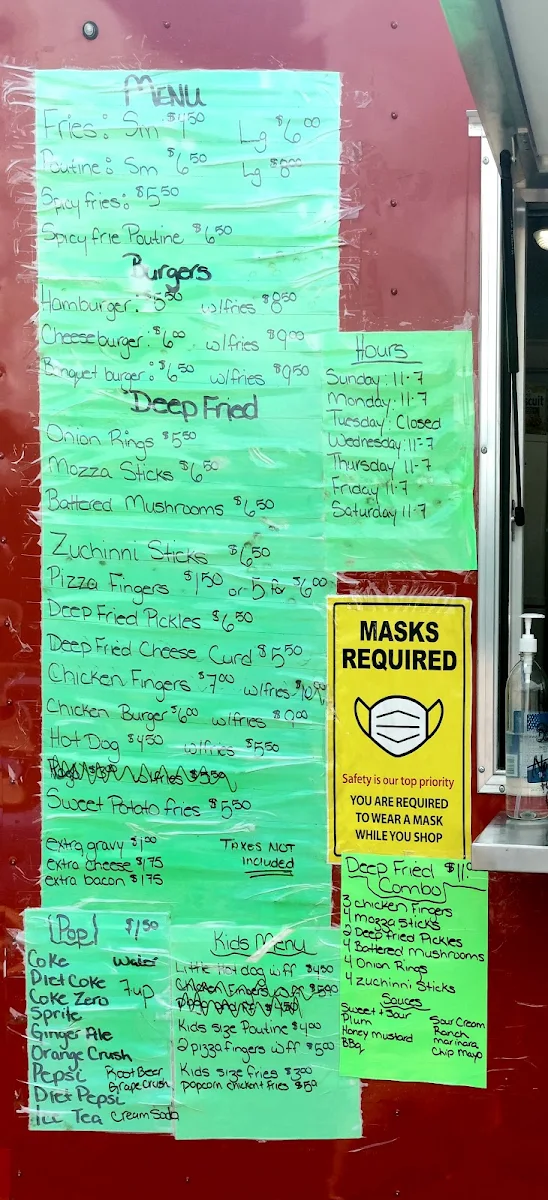 MENU
Fries: Sm $4.50 Lg $6.00
Poutine: Sm $6.50 Lg $8.00
Spicy fries: $5.50
Spicy frie Poutine $6.50
Burgers
Hamburger: $5.50 w/fries $8.50
Cheeseburger: $6.00 w/fries $9.00
Banquet burger: $6.50 w/fries $9.50
Deep Fried
Onion Rings $5.50
Mozza Sticks $6.50
Battered Mushrooms $6.50
Zuchinni Sticks $6.50
Pizza Fingers $1.50 or 5 for $6.00
Deep Fried Pickles $6.50
Deep Fried Cheese Curd $5.50
Chicken Fingers $7.00 w/fries
Chicken Burger $6.00 w/fries $9.00
Hot Dog $4.50 w/fries $5.50
Sweet Potato fries $5.50
extra gravy $1.00
extra cheese $1.75
extra bacon $1.75
TAXES NOT
included
Hours
Sunday: 11-7
Monday: 11-7
Tuesday: Closed
Wednesday: 11-7
Thursday 11-7
Friday 11-7
Saturday 11-7
MASKS
REQUIRED
Safety is our top priority
YOU ARE REQUIRED
TO WEAR A MASK
WHILE YOU SHOP
Deep Fried $11.00
Combo
3 chicken Fingers
4 mozza sticks
2 Deep fried Pickles
4 Battered mushrooms
4 Onion Rings
4 zuchinni Sticks
Sauces
Sweet + Sour
Plum
Honey mustard
BBQ
Sour Cream
Ranch
marinara
Chip mayo
Pop $1.50
Coke Water
Diet Coke
Coke Zero 7up
Sprite
Ginger Ale
Orange Crush
Pepsi Root Beer
Diet Pepsi Grape crush
Ice Tea Cream Soda
Kids Menu
Little hot dog w ff $4.50
Chicken Fingers w ff
Kids size Poutine $4.00
2 pizza fingers w ff $5.00
Kids size fries $3.00
popcorn chicken + fries